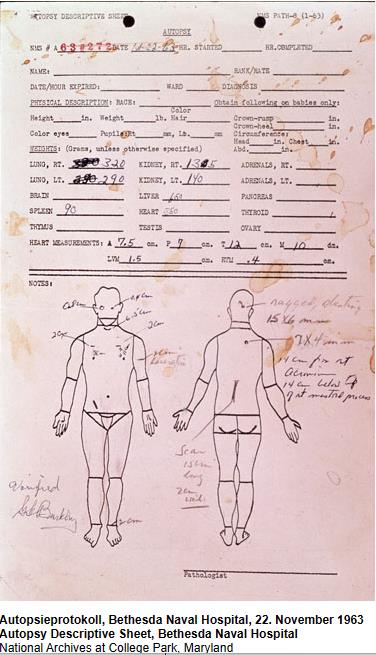 AUTOPSY DESCRIPTIVE SHEET NMS PATH-8 (1-63)
AUTOPSY
NMS # A 63 #272 DATE 11-22-63 HR. STARTED HR.COMPLETED
NAME: RANK/RATE
DATE/HOUR EXPIRED: WARD DIAGNOSIS
PHYSICAL DESCRIPTION: RACE: Obtain following on babies only:
Color
Height in. Weight lb. Hair Crown-rump in.
Crown-heel in.
Color eyes Pupils:Rt mm, Lt. mm Circumference:
Head in. Chest in.
Abd. in.
WEIGHTS: (Grams, unless otherwise specified)
LUNG, RT. 320 KIDNEY, RT. ADRENALS, RT.
LUNG, LT. 290 KIDNEY, LT. 140 ADRENALS, LT.
BRAIN LIVER 650 PANCREAS
SPLEEN 90 HEART 350 THYROID
THYMUS TESTIS OVARY
HEART MEASUREMENTS: A 7.5 cm. P 7 cm. T 12 cm. M 10 cm.
LVM 1.5 cm. RTM .4 cm.
NOTES:
ragged, slanting
15 X 6 mm
6.5 cm
2cm
7 X 4 mm
14 cm from rt
acromion
14 cm below tip
of rt mastoid process
Scar
long
2 cm
Verified
GG Burkley
2 cm
Pathologist
Autopsieprotokoll, Bethesda Naval Hospital, 22. November 1963
Autopsy Descriptive Sheet, Bethesda Naval Hospital
National Archives at College Park, Maryland